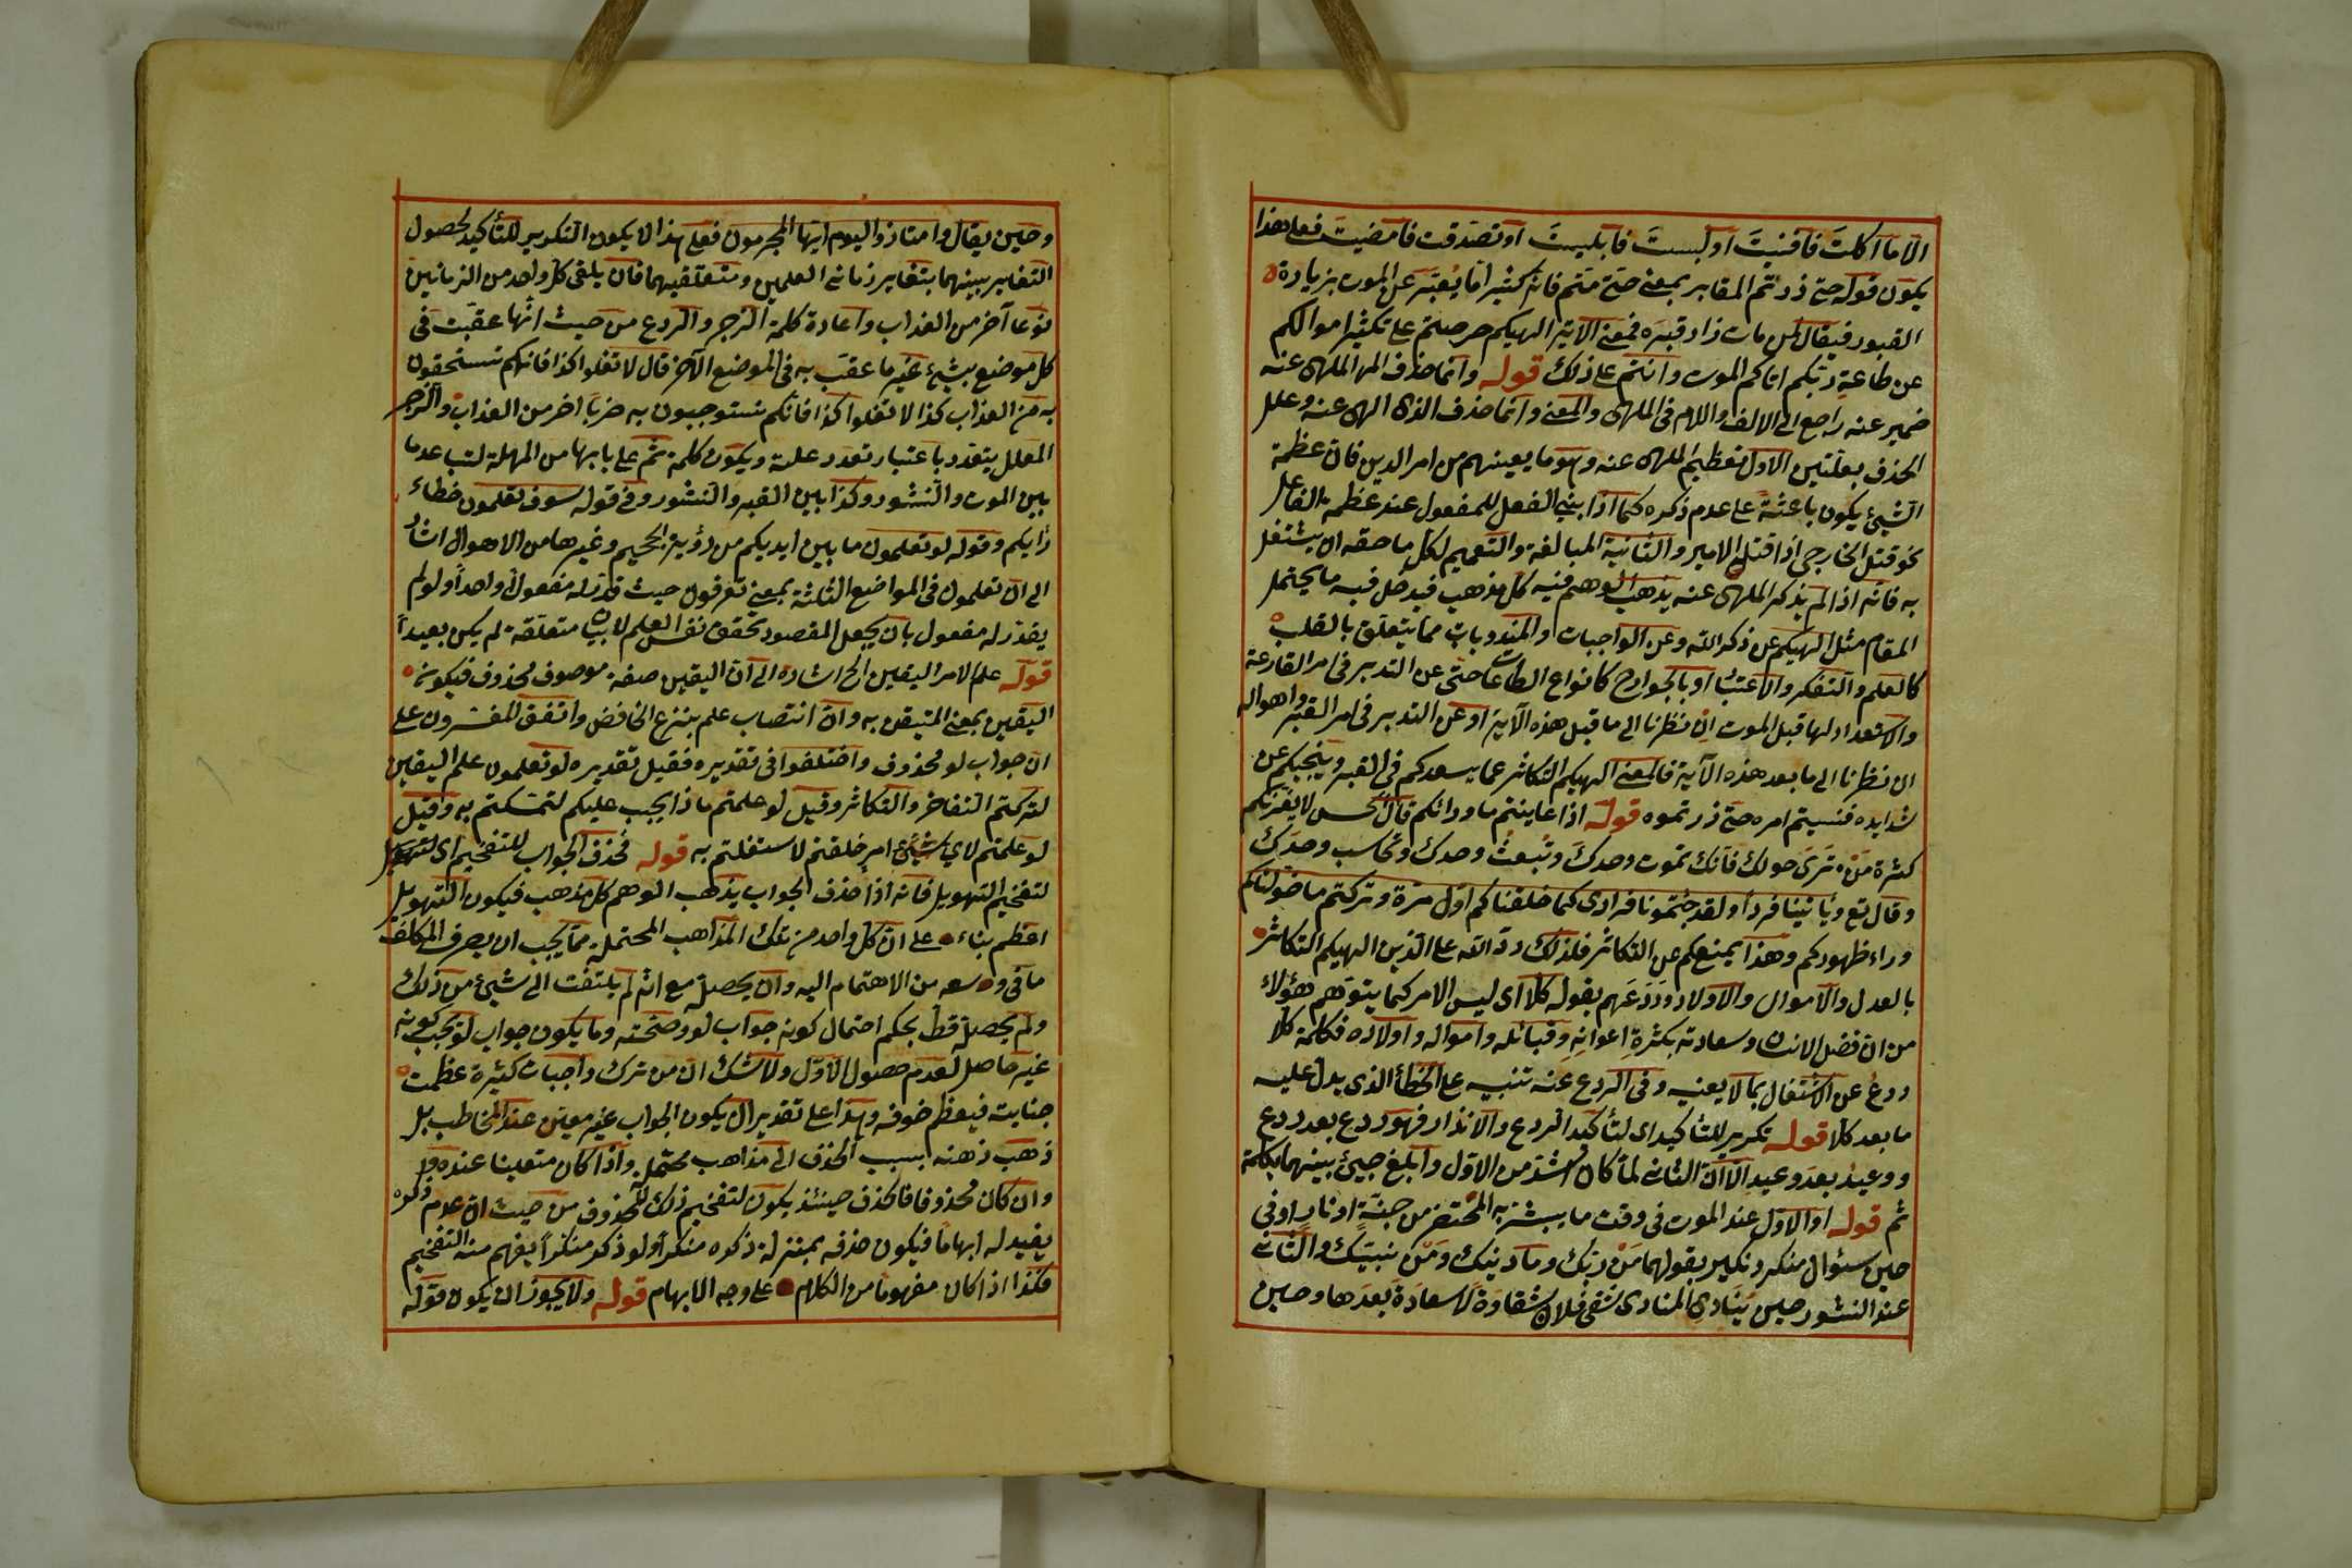 الا ما اكلت فافنيت او لبست فابليت او تصدقت فامضيت فعلى هذا
يكون قوله حتى زرتم المقابر بمعنى حتى متم فانه كثيرا ما يعبر عن الموت بزيارة
القبور فيقال لمن مات زار قبره فمعنى الآية الهيكم حرصتم على تكثير اموالكم
عن طاعة ربكم اتاكم الموت وانتم على ذلك قوله وانما حذف الملهى عنه
ضمير عنه راجع الى الالف واللام في الملهى والمعنى وانما حذف الذي الهى عنه وعلل
الحذف بعلتين الاول تعظيم الملهى عنه وهو ما يعينهم من امر الدين فان عظمة
الشيئ يكون باعثة على عدم ذكره كما اذا بني الفعل للمفعول عند عظمة الفاعل
نحو قتل الخارجي اذا قتل الامير والثانية المبالغة والتعميم لكل ما حقه ان يشتغل
به فانه اذا لم يذكر الملهى عنه يذهب الوهم فيه كل مذهب فيدخل فيه ما يحتمل
المقام مثل الهيكم عن ذكر الله وعن الواجبات والمندوبات مما يتعلق بالقلب
كالعلم والتفكر والاعتبار او بالجوارح كانواع الطاعات حتى عن التدبر في امر القارعة
والاستعداد لها قبل الموت ان نظرنا الى ما قبل هذه الآية او عن التدبر في امر القبر واهواله
ان نظرنا الى ما بعد هذه الآية فالمعنى الهيكم التكاثر عما يسعدكم في القبر وينجيكم عن
شدايده فنسيتم امره حتى زرتموه قوله اذا عاينتم ما ورائكم قال الحسن لا يغرنكم
كثرة من ترى حولك فانك تموت وحدك وتبعث وحدك وتحاسب وحدك
وقال تع ويأتينا فردا ولقد جئتمونا فرادى كما خلقناكم اول مرة وتركتم ما خولناكم
وراء ظهوركم وهذا يمنعكم عن التكاثر فلذلك رد الله على الذين الهيكم التكاثر
بالعدل والاموال والاولاد وردعهم بقوله كلا اى ليس الامر كما يتوهم هؤلاء
من ان فضل الانسان وسعادته بكثرة اعوانه وقبائله وامواله واولاده فكلمة كلا
ردع عن الاشتغال بما لا يعنيه وفى الردع عنه تنبيه على الخطأ الذي يدل عليه
ما بعد كلا قوله تكرير للتأكيد اى لتأكيد الردع والانذار فهو ردع بعد ردع
ووعيد بعد وعيد الا ان الثاني لما كان اشد من الاول وابلغ جيئ بينهما بكلمة
ثم قوله او الاول عند الموت في وقت ما يبشر به المحتضر من جنة او نار او في
حين سئوال منكر ونكير بقولهما من ربك وما دينك ومن نبيك والثاني
عند النشور حين ينادي المنادى شقي فلان شقاوة لا سعادة بعدها وحين
وحين يقال وامتازوا اليوم ايها المجرمون فعلى هذا لا يكون التكرير للتأكيد لحصول
التغاير بينهما بتغاير زمانى العلمين ومتعلقيهما فان يلقى كل واحد من الزمانين
نوعا آخر من العذاب واعادة كلمة الزجر والردع من حيث انها عقبت في
كل موضع بشيئ غير ما عقب به في الموضع الآخر قال لا تفعلوا كذا فانكم تستحقون
به من العذاب كذا لا تفعلوا كذا فانكم تستوجبون به ضربا اخر من العذاب والزجر
المعلل يتعدد باعتبار تعدد علته ويكون كلمة ثم على بابها من المهلة لتباعد ما
بين الموت والنشور وكذا بين القبر والنشور وفي قوله سوف تعلمون خطاء
رأيكم وقوله لو تعلمون ما بين ايديكم من رؤية الجحيم وغيرها من الاهوال اشار
الى ان تعلمون في المواضع الثلثة بمعنى تعرفون حيث قدر له مفعولا واحدا ولو لم
يقدر له مفعول بان يجعل المقصود تحقق نفس العلم لا بيان متعلقه لم يكن بعيدا
قوله علم الامر اليقين الخ اشارة الى ان اليقين صفة موصوف محذوف فيكون
اليقين بمعنى المتيقن به وان انتصاب علم بنزع الخافض واتفق المفسرون على
ان جواب لو محذوف واختلفوا في تقديره فقيل تقديره لو تعلمون علم اليقين
لتركتم التفاخر والتكاثر وقيل لو علمتم ماذا يجب عليكم لتمسكتم به وقيل
لو علمتم لاي شيئ امر خلقتم لاشتغلتم به قوله فحذف الجواب للتفخيم اى
لتفخيم التهويل فانه اذا حذف الجواب يذهب الوهم كل مذهب فيكون التهويل
اعظم بناء على ان كل واحد من تلك المذاهب المحتملة مما يجب ان يصرف المكلف
ما في وسعه من الاهتمام اليه وان يحصله مع انه لم يلتفت الى شيئ من ذلك
ولم يحصله قط بحكم احتمال كونه جواب لو وصحته وما يكون جواب لو يجب كونه
غير حاصل لعدم حصول الاول ولا شك ان من ترك واجبات كثيرة عظمت
جنايته فيعظم خوفه وهذا على تقدير ان يكون الجواب غير معين عند المخاطب بل
ذهب ذهنه بسبب الحذف الى مذاهب محتملة واذا كان متعينا عنده
وان كان محذوفا فالحذف حينئذ يكون لتفخيم ذلك المحذوف من حيث ان عدم ذكره
يفيد له ابهاما فيكون حذفه بمنزلة ذكره منكرا ولو ذكر منكرا يفهم منه التفخيم
فكذا اذا كان مفهوما من الكلام على وجه الابهام قوله ولا يجوز ان يكون قوله